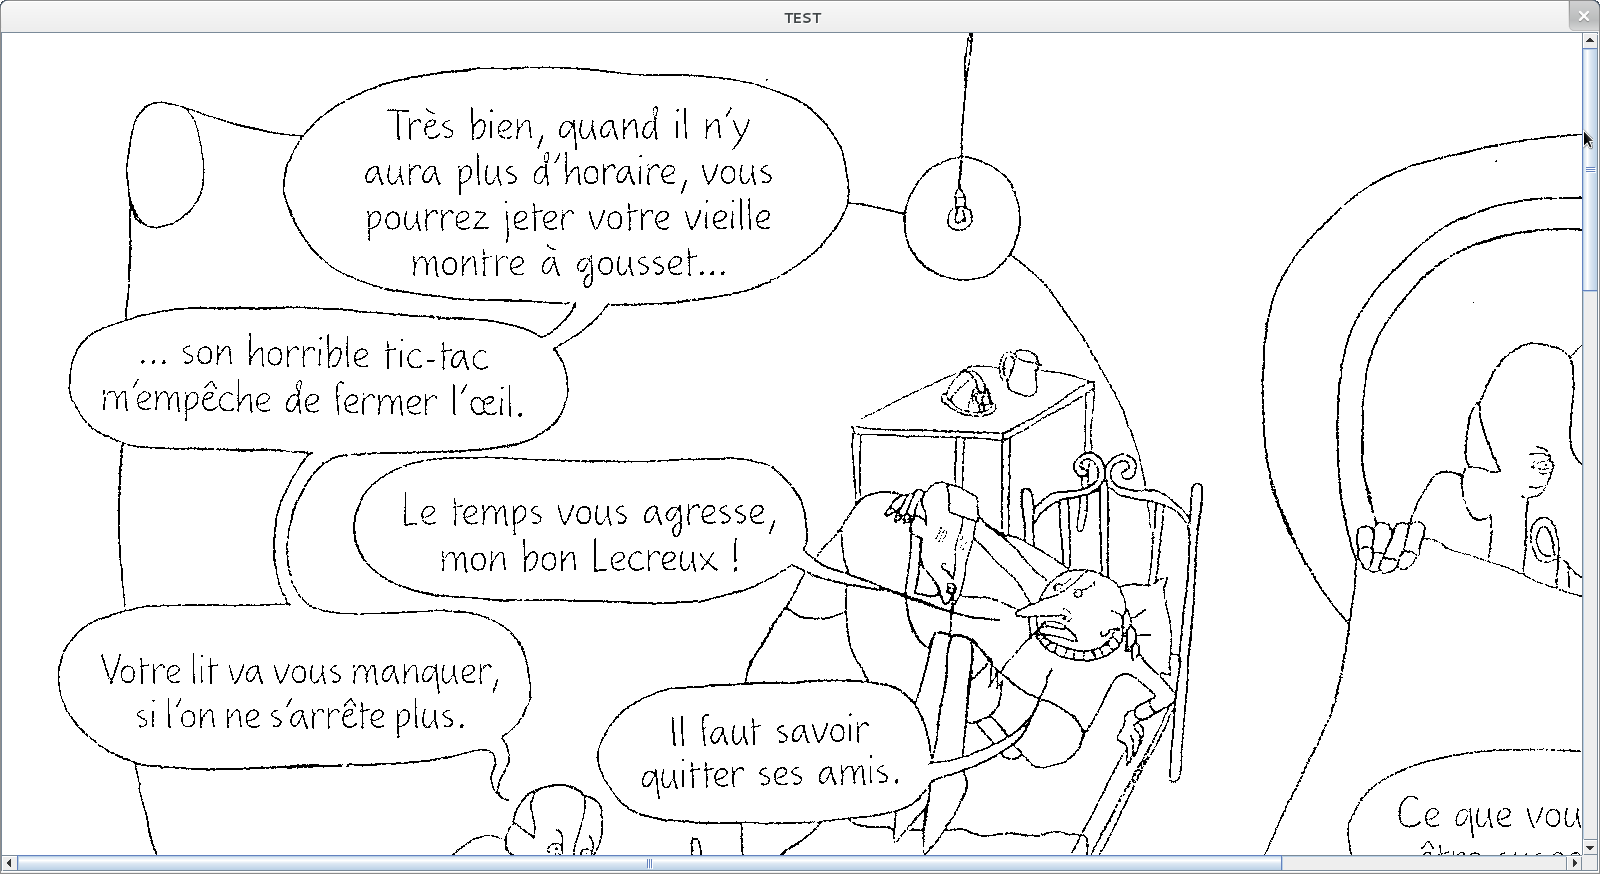 TEST
Très bien, quand il n'y
aura plus d'horaire, vous
pourrez jeter votre vieille
montre à gousset...
... son horrible tic-tac
m'empêche de fermer l'œil.
Le temps vous agresse,
mon bon Lecreux !
Votre lit va vous manquer,
si l'on ne s'arrête plus.
Il faut savoir
quitter ses amis.
Ce que vou